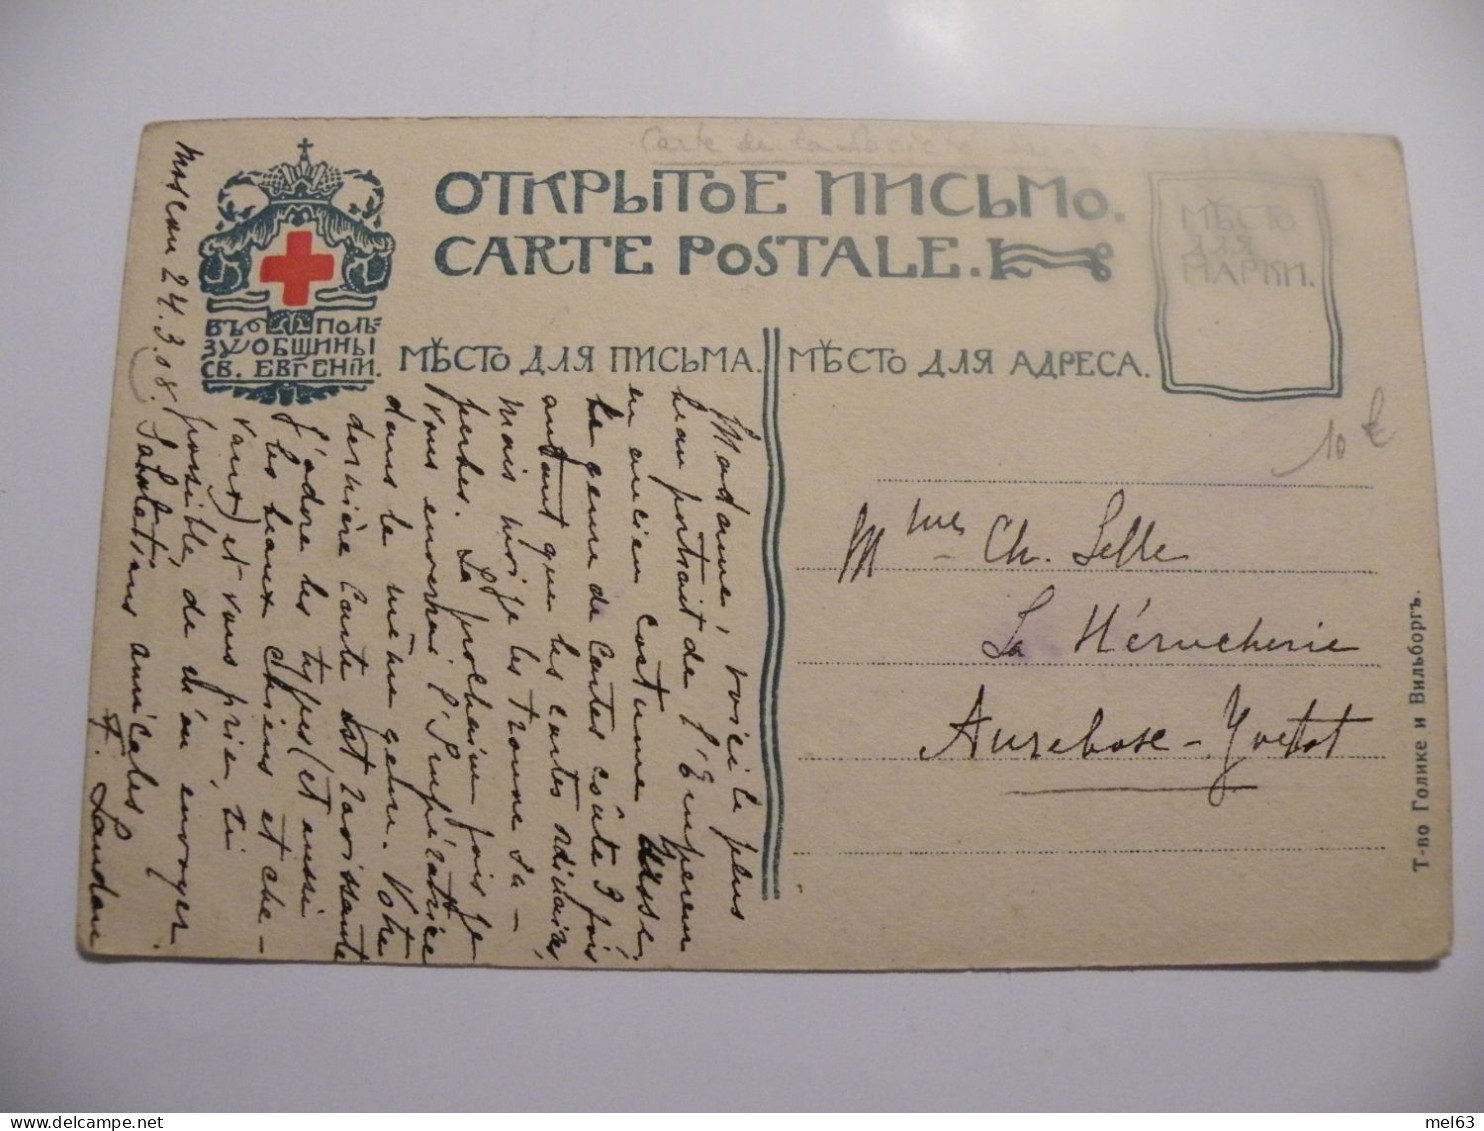 Carte de la Société
ОТКРЫТОЕ ПИСЬМО.
CARTE POSTALE.
МѢСТО
ДЛЯ
МАРКИ.
ВЪ ПОЛЬ
ЗУ ОБЩИНЫ
СВ. ЕВГЕНІИ.
МѢСТО ДЛЯ ПИСЬМА.
МѢСТО ДЛЯ АДРЕСА.
10 €
Moscou 24.3.08.
Madame, voici le plus
beau portrait de l'Empereur
en ancien costume russe.
Le genre de Cartes coûte 3 fois
autant que les cartes ordinaires,
mais moi je les trouve su-
perbes. La prochaine fois je
vous enverrai l'Impératrice
dans le même genre. Votre
dernière Carte est ravissante
J'adore les types (et aussi
les beaux chiens et che-
vaux) et vous prie, si
possible, de m'en envoyer.
Salutations amicales
F. Landau
Mmes Ch. Selle
La Hérucherie
Auzebosc - Yvetot
Т-во Голике и Вильборгъ.
mel63